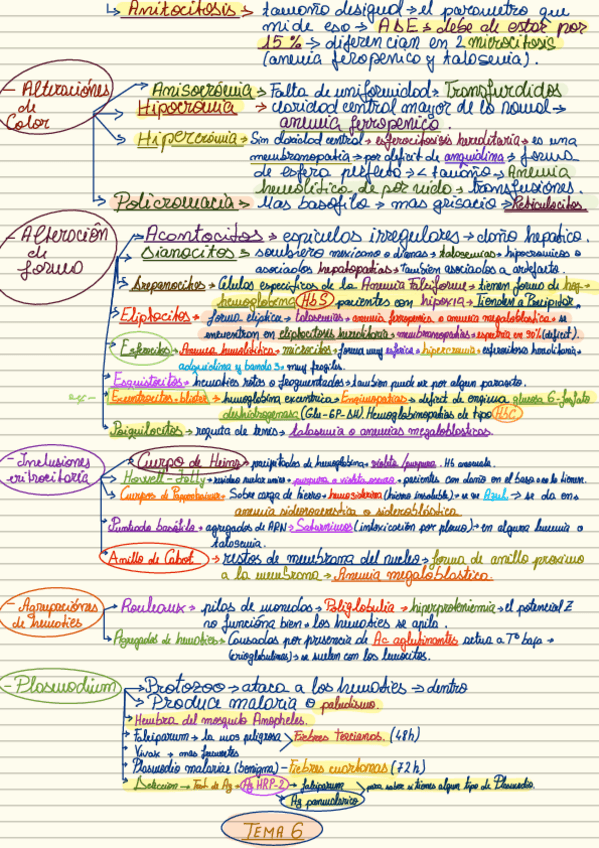 Anitocitosis → tamaño desigual → el parametro que
mide eso → ADE → debe de estar por
15% → diferencian en 2 microcitosis
(anemia feropenico y talasemia).
- Alteraciónes de Color
Anisocrómia → Falta de uniformidad → Transfundidos
Hipocromia → claridad central mayor de lo nomal →
anemia ferropenico.
Hipercrómia → Sin claridad central → esferocitosis hereditaria → es una
membranopatía → por deficit de anquidina → forma
de esfera prefecto → < tamaño → Anemia
hemolitica de por vida → transfusiones.
Policromacia → Mas basofilo → mas grisacio → Reticulocitos.
- Alteración de forma
Acantocitos → espiculos irregulares → daño hepatico.
Dianocitos → sombrero mexicano o dianas → talasemias → hipocromicos o
asociados hepatopatias → tambien asociados a artefacto.
Drepanocitos → Celulas especificas de la Anemia Falciforme → tienen forma de hoz →
hemoglobina HbS pacientes con hipoxia → Tienden a Precipitar
Eliptocitos → forma eliptica → talasemias → anemia ferropenica o anemia megaloblastica → se
encuentran en eliptocitosis hereditaria → membranopatias → espectrina en 90% (deficit).
Esferocitos → Anemia hemolitica → microcitos → forma muy esferica → hipercromia → esferocitosis hereditaria →
adquidina y banda 3 → muy fragiles.
Esquistocitos → hematies rotos o fragmentados → tambien puede ser por algun parasito.
Excentrocitos-blister → hemoglobina excentrica → Enzimopatias → deficit de enzima glucosa 6-fosfato
deshidrogenasa (Glu-6P-DH). Hemoglobinopatias de tipo HbC
Poiquilocitos → raqueta de tenis → talasemia o anemias megaloblasticos.
- Inclusiones eritrocitaria
Cuerpo de Heinz → precipitados de hemoglobina → violeta/purpura. Hb anomala.
Howell-Jolly → residuo nuclear unico → purpura o violeta oscuro → pacientes con daño en el bazo → no lo tienen.
Cuerpos de Pappenheimer → Sobre carga de hierro → hemosiderina (hierro insoluble) → se ve Azul → se da en →
anemia sideroacrestica o sideroblástica.
Punteado basófilo → agregados de ARN → Saturnismo (intoxicación por plomo) → en alguna leucemia o
talasemia.
Anillo de Cabot → restos de membrana del nucleo → forma de anillo proximo
a la membrana → Anemia megaloblastica.
- Agrupaciónes de hematies
Rouleaux → pilas de monedas → Poliglobulia → hiperproteinemia → el potencial Z
no funcióna bien → los hematies se apila.
Agregados de hematies → Causados por presencia de Ac aglutinantes actua a Tº baja →
(crioglobulinas) →
- Plasmodium
Protozoo → ataca a los hematies → dentro
Produce malaria o paludismo.
Hembra del mosquito Anopheles.
Falciparum → la mas peligrosa
Vivax → mas frecuentes
Fiebres tercianas. (48h)
Plasmodio malariae (benigna) - Fiebres cuartanas (72h)
Deteccion → Test de Ag → Ag HRP-2 → falciparum
Ag panmalarico
para saber si tienes algun tipo de Plasmodio.
TEMA 6